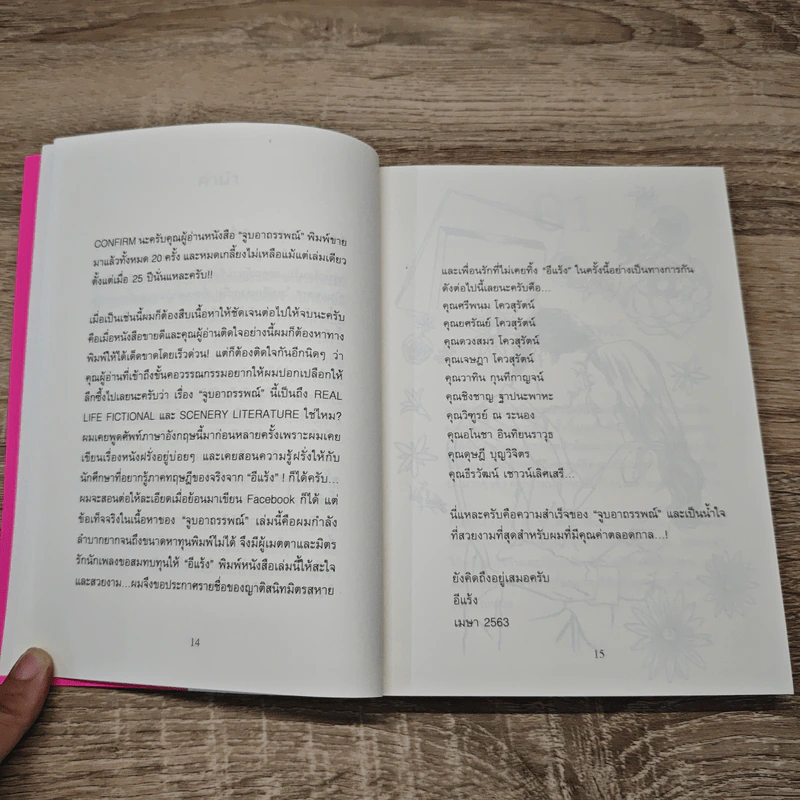 CONFIRM นะครับคุณผู้อ่านหนังสือ "จูบอาถรรพณ์" พิมพ์ขาย
มาแล้วทั้งหมด 20 ครั้ง และหมดเกลี้ยงไม่เหลือแม้แต่เล่มเดียว
ตั้งแต่เมื่อ 25 ปีนั่นแหละครับ!!
เมื่อเป็นเช่นนี้ผมก็ต้องสืบเนื้อหาให้ชัดเจนต่อไปให้จบนะครับ
คือเมื่อหนังสือขายดีและคุณผู้อ่านติดใจอย่างนี้ผมก็ต้องหาทาง
พิมพ์ให้ได้เด็ดขาดโดยเร็วด่วน! แต่ก็ต้องติดใจกันอีกนิดๆ ว่า
คุณผู้อ่านที่เข้าถึงขั้นคอวรรณกรรมอยากให้ผมปอกเปลือกให้
ลึกซึ้งไปเลยนะครับว่า เรื่อง "จูบอาถรรพณ์" นี้เป็นถึง REAL
LIFE FICTIONAL และ SCENERY LITERATURE ใช่ไหม?
ผมเคยพูดศัพท์ภาษาอังกฤษนี้มาก่อนหลายครั้งเพราะผมเคย
เขียนเรื่องหนังฝรั่งอยู่บ่อยๆ และเคยสอนความรู้ฝรั่งให้กับ
นักศึกษาที่อยากรู้ภาคทฤษฎีของจริงจาก "อีแร้ง" ! ก็ได้ครับ...
ผมจะสอนต่อให้ละเอียดเมื่อย้อนมาเขียน Facebook ก็ได้ แต่
ข้อเท็จจริงในเนื้อหาของ "จูบอาถรรพณ์" เล่มนี้คือผมกำลัง
ลำบากยากจนถึงขนาดหาทุนพิมพ์ไม่ได้ จึงมีผู้เมตตาและมิตร
รักนักเพลงขอสมทบทุนให้ "อีแร้ง" พิมพ์หนังสือเล่มนี้ให้สะใจ
และสวยงาม...ผมจึงขอประกาศรายชื่อของญาติสนิทมิตรสหาย
14
และเพื่อนรักที่ไม่เคยทิ้ง "อีแร้ง" ในครั้งนี้อย่างเป็นทางการกัน
ดังต่อไปนี้เลยนะครับคือ...
คุณศรีพนม โควสุรัตน์
คุณยศรัณย์ โควสุรัตน์
คุณดวงสมร โควสุรัตน์
คุณเจษฎา โควสุรัตน์
คุณวาทิน กุนทีกาญจน์
คุณชิงชาญ ฐาปนะพาหะ
คุณวิฑูรย์ ณ ระนอง
คุณอโนชา อินทิยนราวุธ
คุณดุษฎี บุญวิจิตร
คุณธีรวัฒน์ เชาวน์เลิศเสรี...
นี่แหละครับคือความสำเร็จของ "จูบอาถรรพณ์" และเป็นน้ำใจ
ที่สวยงามที่สุดสำหรับผมที่มีคุณค่าตลอดกาล...!
ยังคิดถึงอยู่เสมอครับ
อีแร้ง
เมษา 2563
15